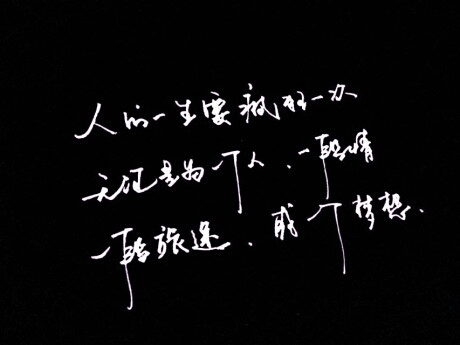 人的一生要疯狂一次
无论是为一个人、一段情
一段旅途、或一个梦想.